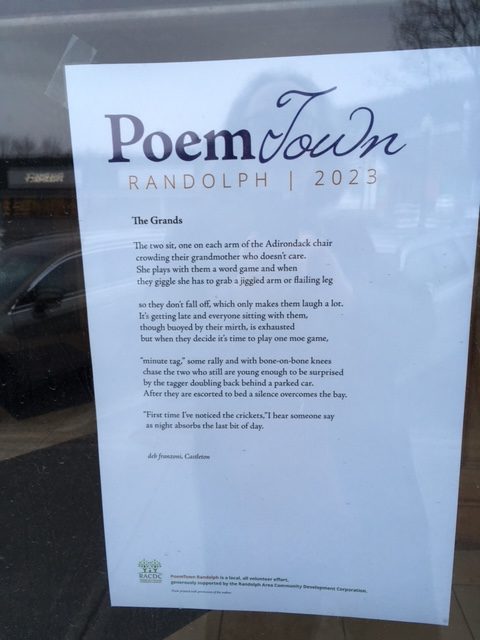 PoemTown
RANDOLPH | 2023
The Grands
The two sit, one on each arm of the Adirondack chair
crowding their grandmother who doesn't care.
She plays with them a word game and when
they giggle she has to grab a jiggied arm or flailing leg
so they don't fall off, which only makes them laugh a lot.
It's getting late and everyone sitting with them,
though buoyed by their mirth, is exhausted
but when they decide it's time to play one moe game,
"minute tag," some rally and with bone-on-bone knees
chase the two who still are young enough to be surprised
by the tagger doubling back behind a parked car.
After they are escorted to bed a silence overcomes the bay.
"First time I've noticed the crickets,"I hear someone say
as night absorbs the last bit of day.
deb franzoni, Castleton
RACDC
PoemTown Randolph is a local, all volunteer effort,
generously supported by the Randolph Area Community Development Corporation.
Poem printed with permission of the author.